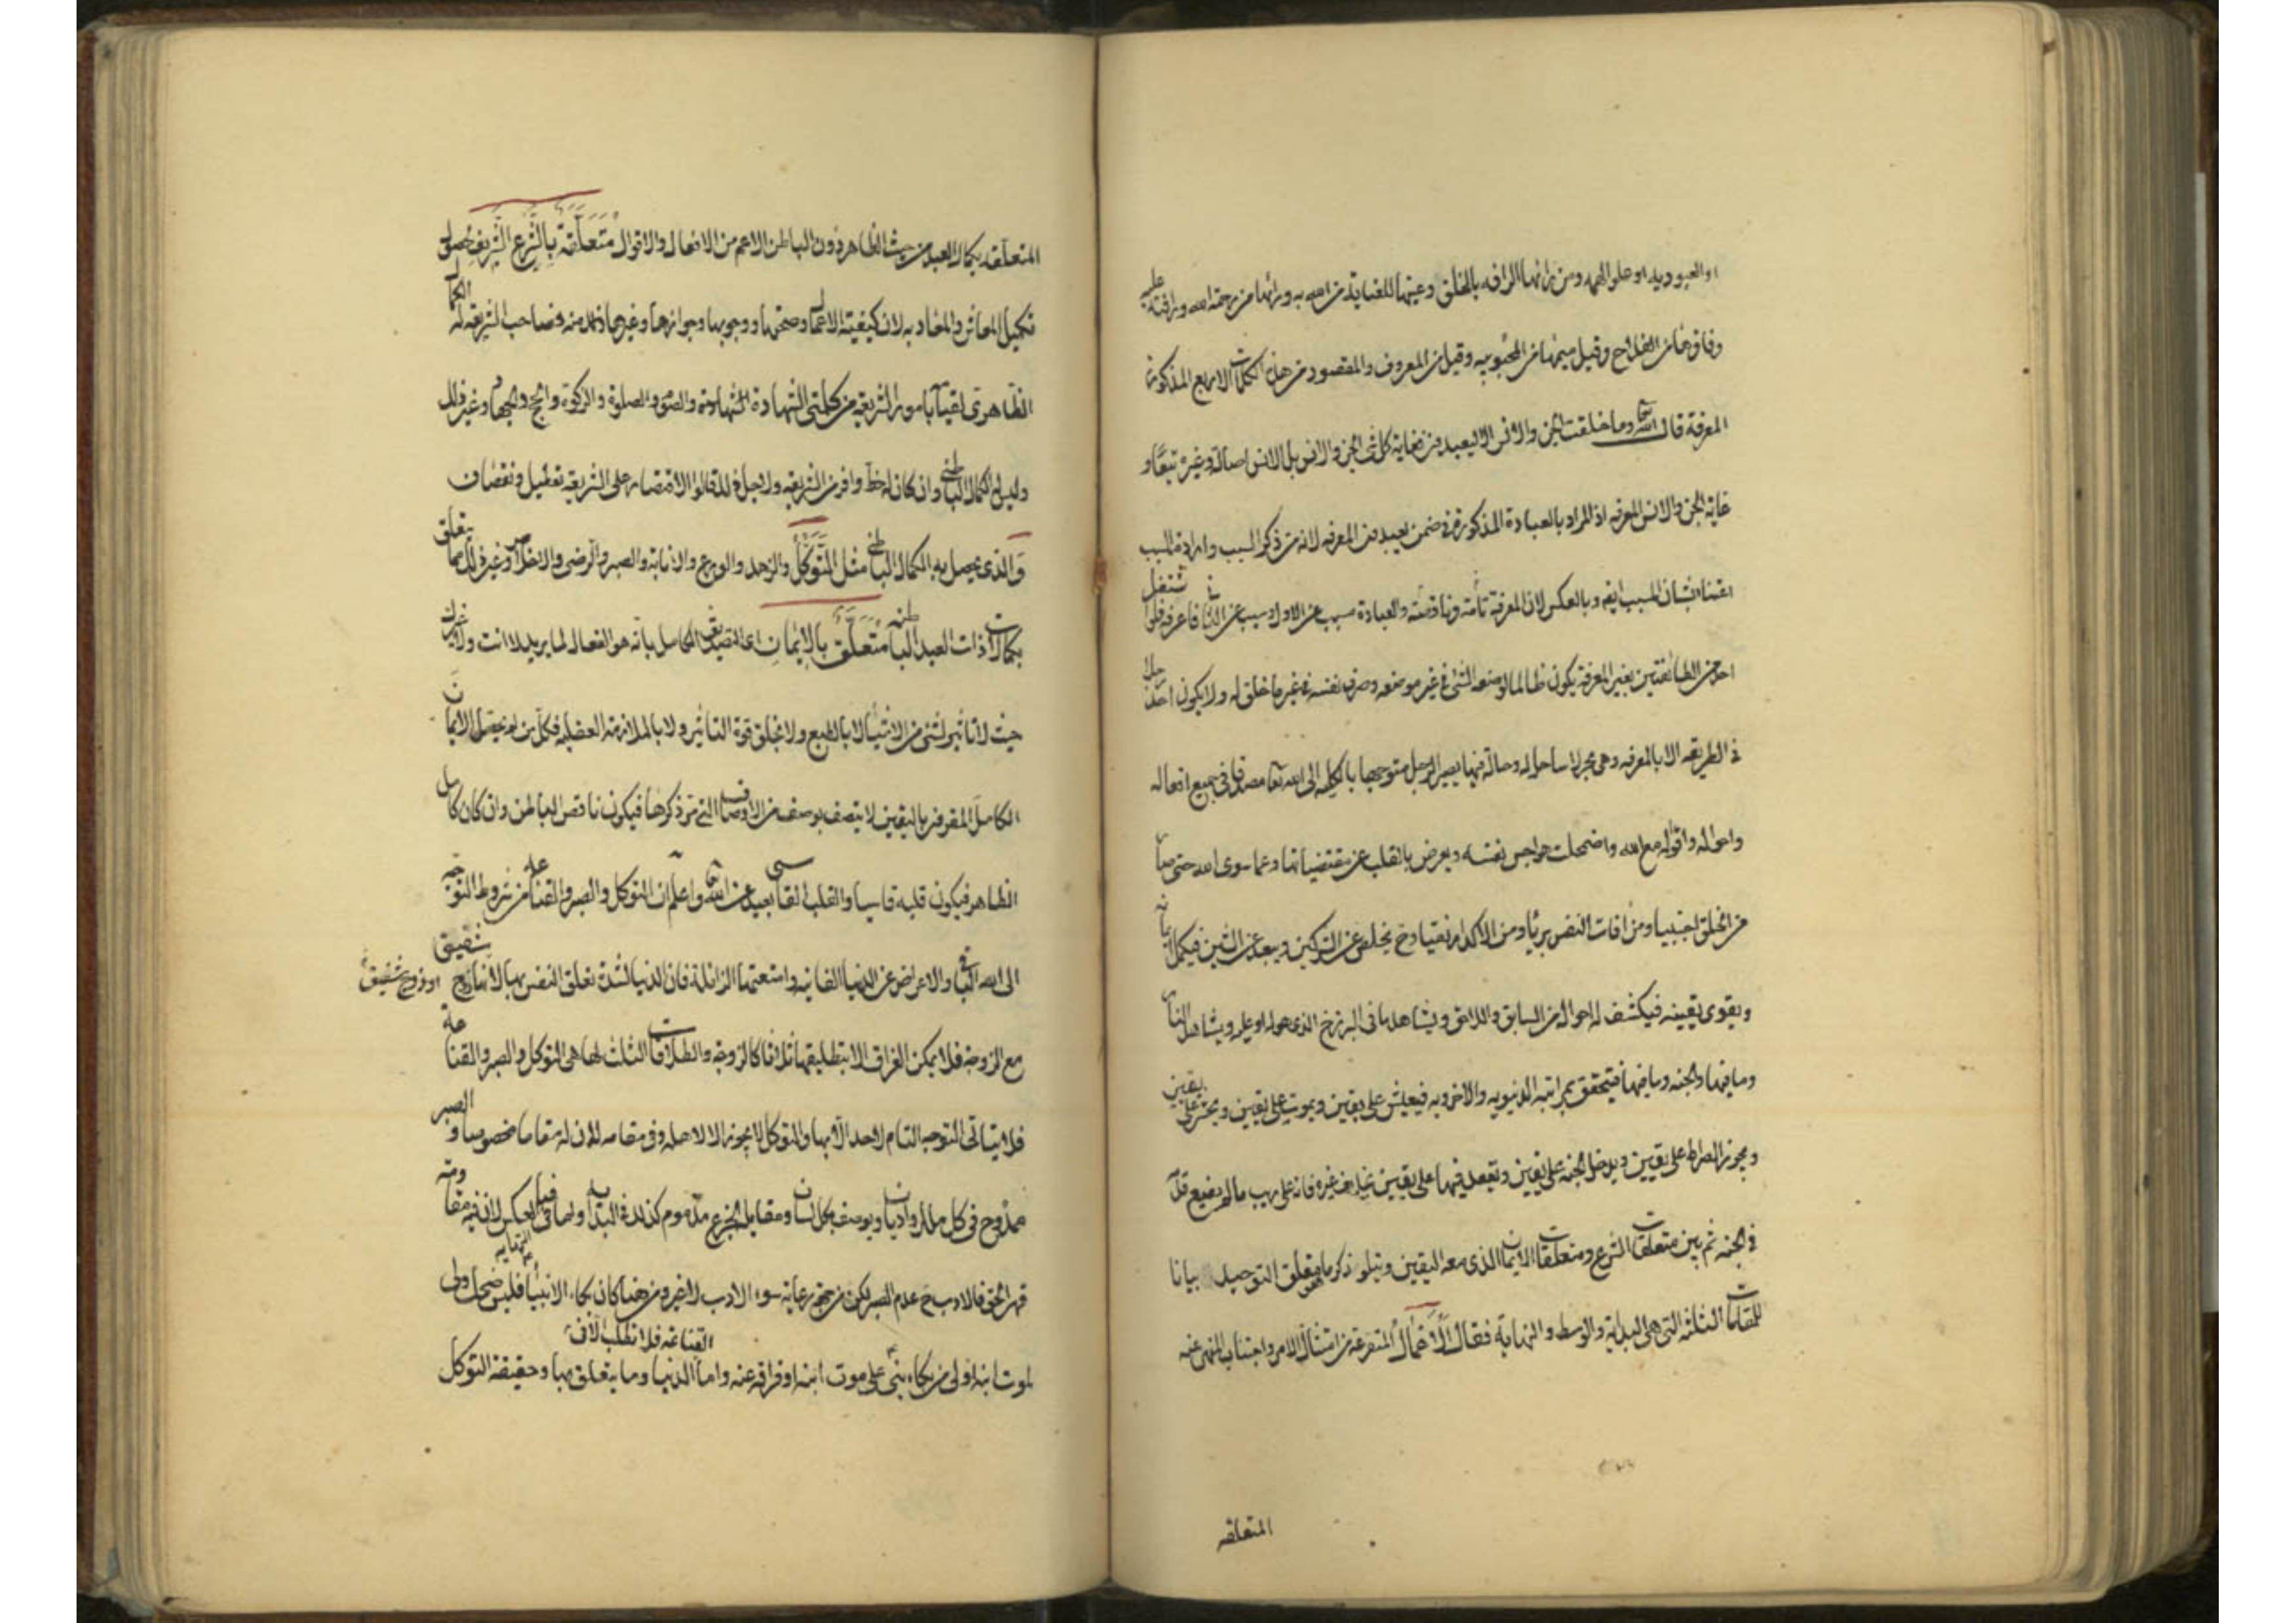 او العبوديه او علو الهمه ومن رائها الرافه بالخلق وعينها للعناية من الله به ورائها من رحمة الله ورافته عليه
وفاوها من الفلاح وقيل ميمها من المحبوبيه وقيل من المعروف والمقصود من هذه الكلمات الاربع المذكورة
المعرفة قال الله تعا وما خلقت الجن والانس الا ليعبدون فغاية كل شئ الجن والانس بل الانس اصالة وغيره تبعا و
غاية الجن والانس المعرفه اذ المراد بالعبادة المذكورة في ضمن ليعبدون المعرفه لانه من ذكر السبب وارادة المسبب
المسبب ايضا وبالعكس لان المعرفة تامة وناقصة والعبادة مسبب عن الاول وسبب عن الثاني فاعرفه فلو اشتغل
احد من الطائفتين بغير المعرفة يكون ظالما لوضعه الشئ في غير موضعه وصرف نفسه في غير ما خلق له ولا يكون احد
في الطريقه الا بالمعرفه وهي بحر لا ساحل له وحالة فيها يصير الرجل متوجها بالكليه الى الله تعا في جميع افعاله
واحواله واقواله مع الله واضمحلت هواجس نفسه ويعرض بالقلب عن مقتضياتها وعما سوى الله حتى صار
من الخلق اجنبيا ومن افات النفس بريا ومن الاكدار نقيا وح يخلص عن ويبعد عن الشين فيكمل ايمانه
ويقوى يقينه فيكشف له احوال من السابق واللاحق ويشاهد ما في البرزخ الذي هو له او عليه ويشاهد النار
وما فيها والجنه وما فيها فيتحقق بمراتبه الدنيويه والاخرويه فيعيش على يقين ويموت على يقين ويحشر على يقين
ويجوز الصراط على يقين ويدخل الجنه على يقين ويقعد فيها على يقين بخلاف غيره فانه على ريب ما لم يضع قدمه
في الجنه ثم بين متعلقات الشرع ومتعلقات الايمان الذي معه اليقين ويتلو ذكر ما يتعلق التوحيد بيانا
للمقامات الثلثه التي هي البداية والوسط والنهاية فقال الاعمال المتفرعة من امتثال الامر واجتناب المنهي عنه
المتعلقه
المتعلقه بكمال العبد من حيث الظاهر دون الباطن الاعم من الافعال والاقوال متعلقة بالشرع الشريف لحصول
تكميل المعاش والمعاد به لان كيفية الاعمال وصحتها ووجوبها وجوازها وغيرها ذلك منه فصاحب الشريعه له الكمال
الظاهري لقيامه بامور الشريعة من كلمتي الشهادة والصوم والصلوة والزكوة والحج والجهاد وغير ذلك
وليس له الكمال الباطني وان كان له حظ وافر من الشريعه ولاجل هذا قالوا الاقتصار على الشريعه تعطيل ونقصان
والذي يحصل به الكمال الباطني مثل التوكل والزهد والورع والانابة والصبر والرضى والاخلاص وغير ذلك مما يتعلق
بكمالات ذات العبد الباطنه متعلق بالايمان اي التصديق الكامل بانه هو الفعال لما يريد لا انت ولا غيرك
حيث لا تاثير لشئ من الاشياء لا بالطبع ولا بخلق قوة التاثير ولا بالملازمة العقليه فكل من لم يحصل الايمان
الكامل المقرون باليقين لا يتصف بوصف من الاوصاف التي مر ذكرها فيكون ناقص الباطن وان كان كامل
الظاهر فيكون قلبه قاسيا والقلب القاسي بعيد عن الله تعا واعلم ان التوكل والصبر والقناعة من شروط التوجه
الى الله الباقي والاعراض عن الدنيا الفانيه وامتعتها الزائلة فان الدنيا لشدة تعلق النفس بها كالانسان زوج شفيق
او زوج شفيق
مع الزوجة فلا يمكن الفراق الا بتطليقها ثلاثا كالزوجة والطلاقات الثلث لها هي التوكل والصبر والقناعة
فلا يتاتى التوجه التام لاحد الا بها والتوكل لا يجوز الا لاهله وفي مقامه لان له مقاما مخصوصا و الصبر
ممدوح في كل ملل واديان ويوصف بكل لسان ومقابله الجزع مذموم كذلك في البدايه واما في النهايه فبالعكس لان فيه مقاومة
قهر الحق فالادب ح عدم الصبر لكن من جهة رعاية سوء الادب لا غير ومن هنا كان بكاء الانبياء فليس ضحك ولي
لموت ابنه اولى من بكاء نبي على موت ابنه او فراقه عنه واما القناعه فلا تطلب الا في الدنيا وما يتعلق بها وحقيقة التوكل